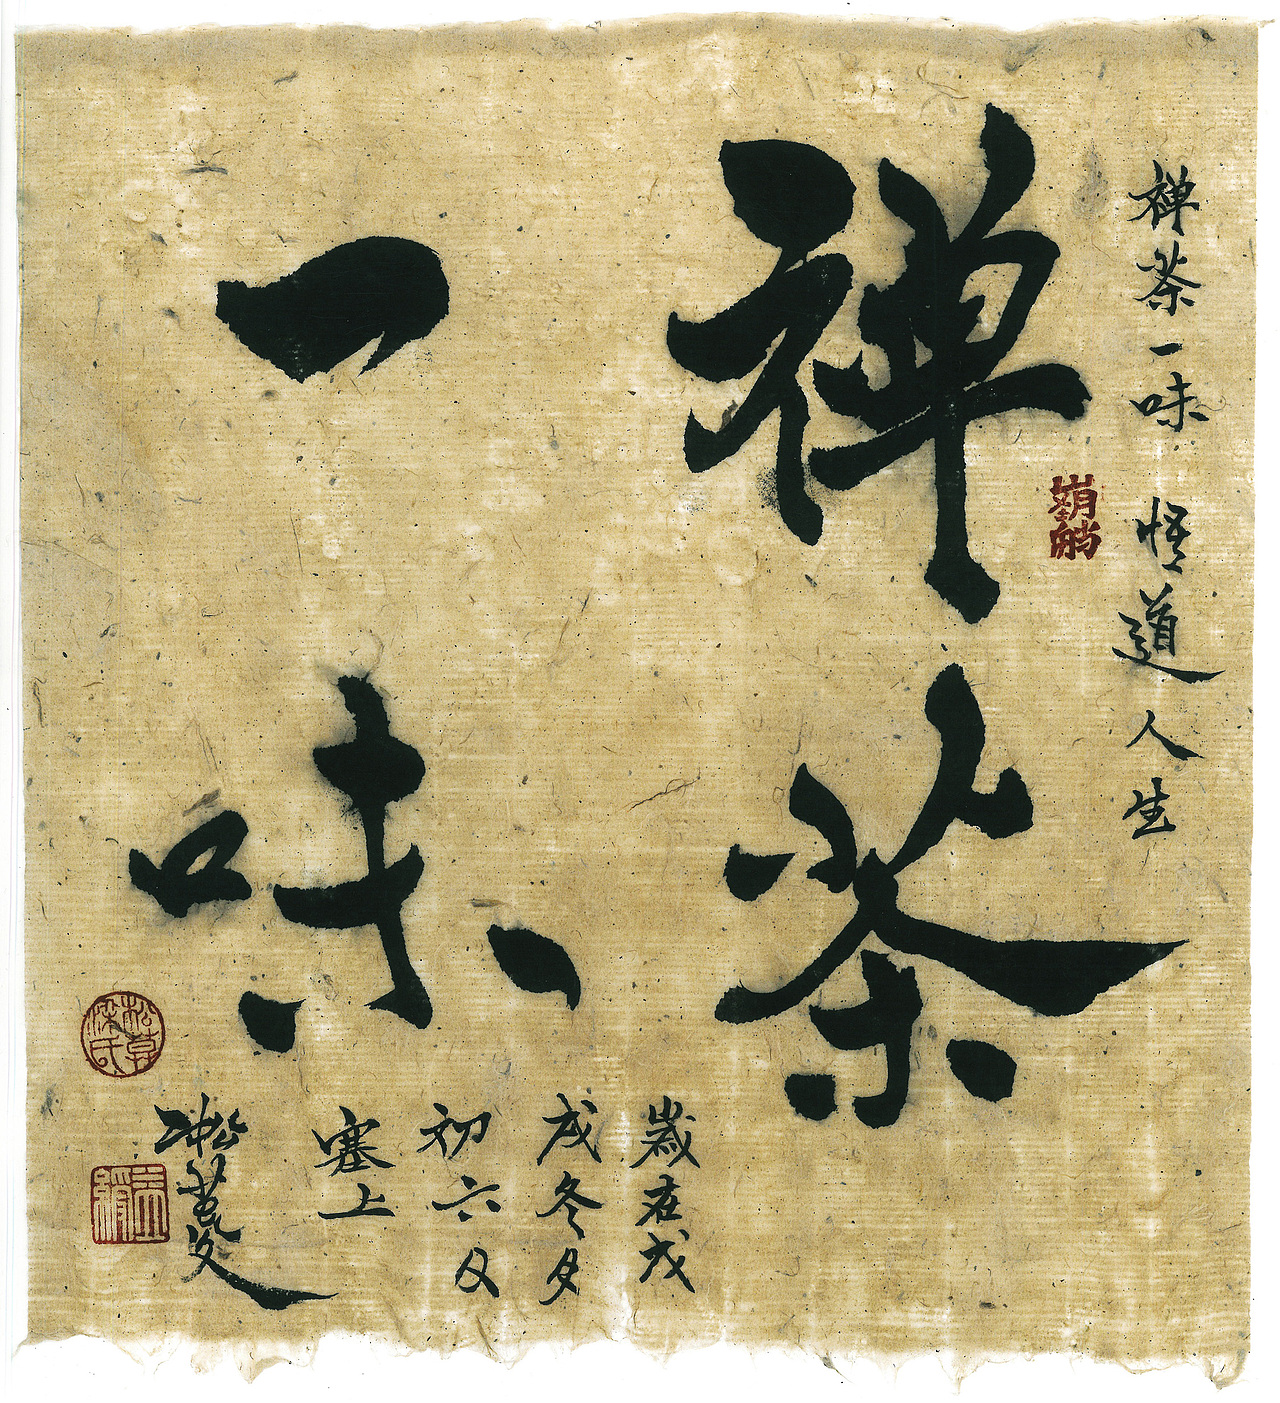 禅茶一味 悟道人生
禅茶
一味
歲在戊
戌冬月
初六日
塞上